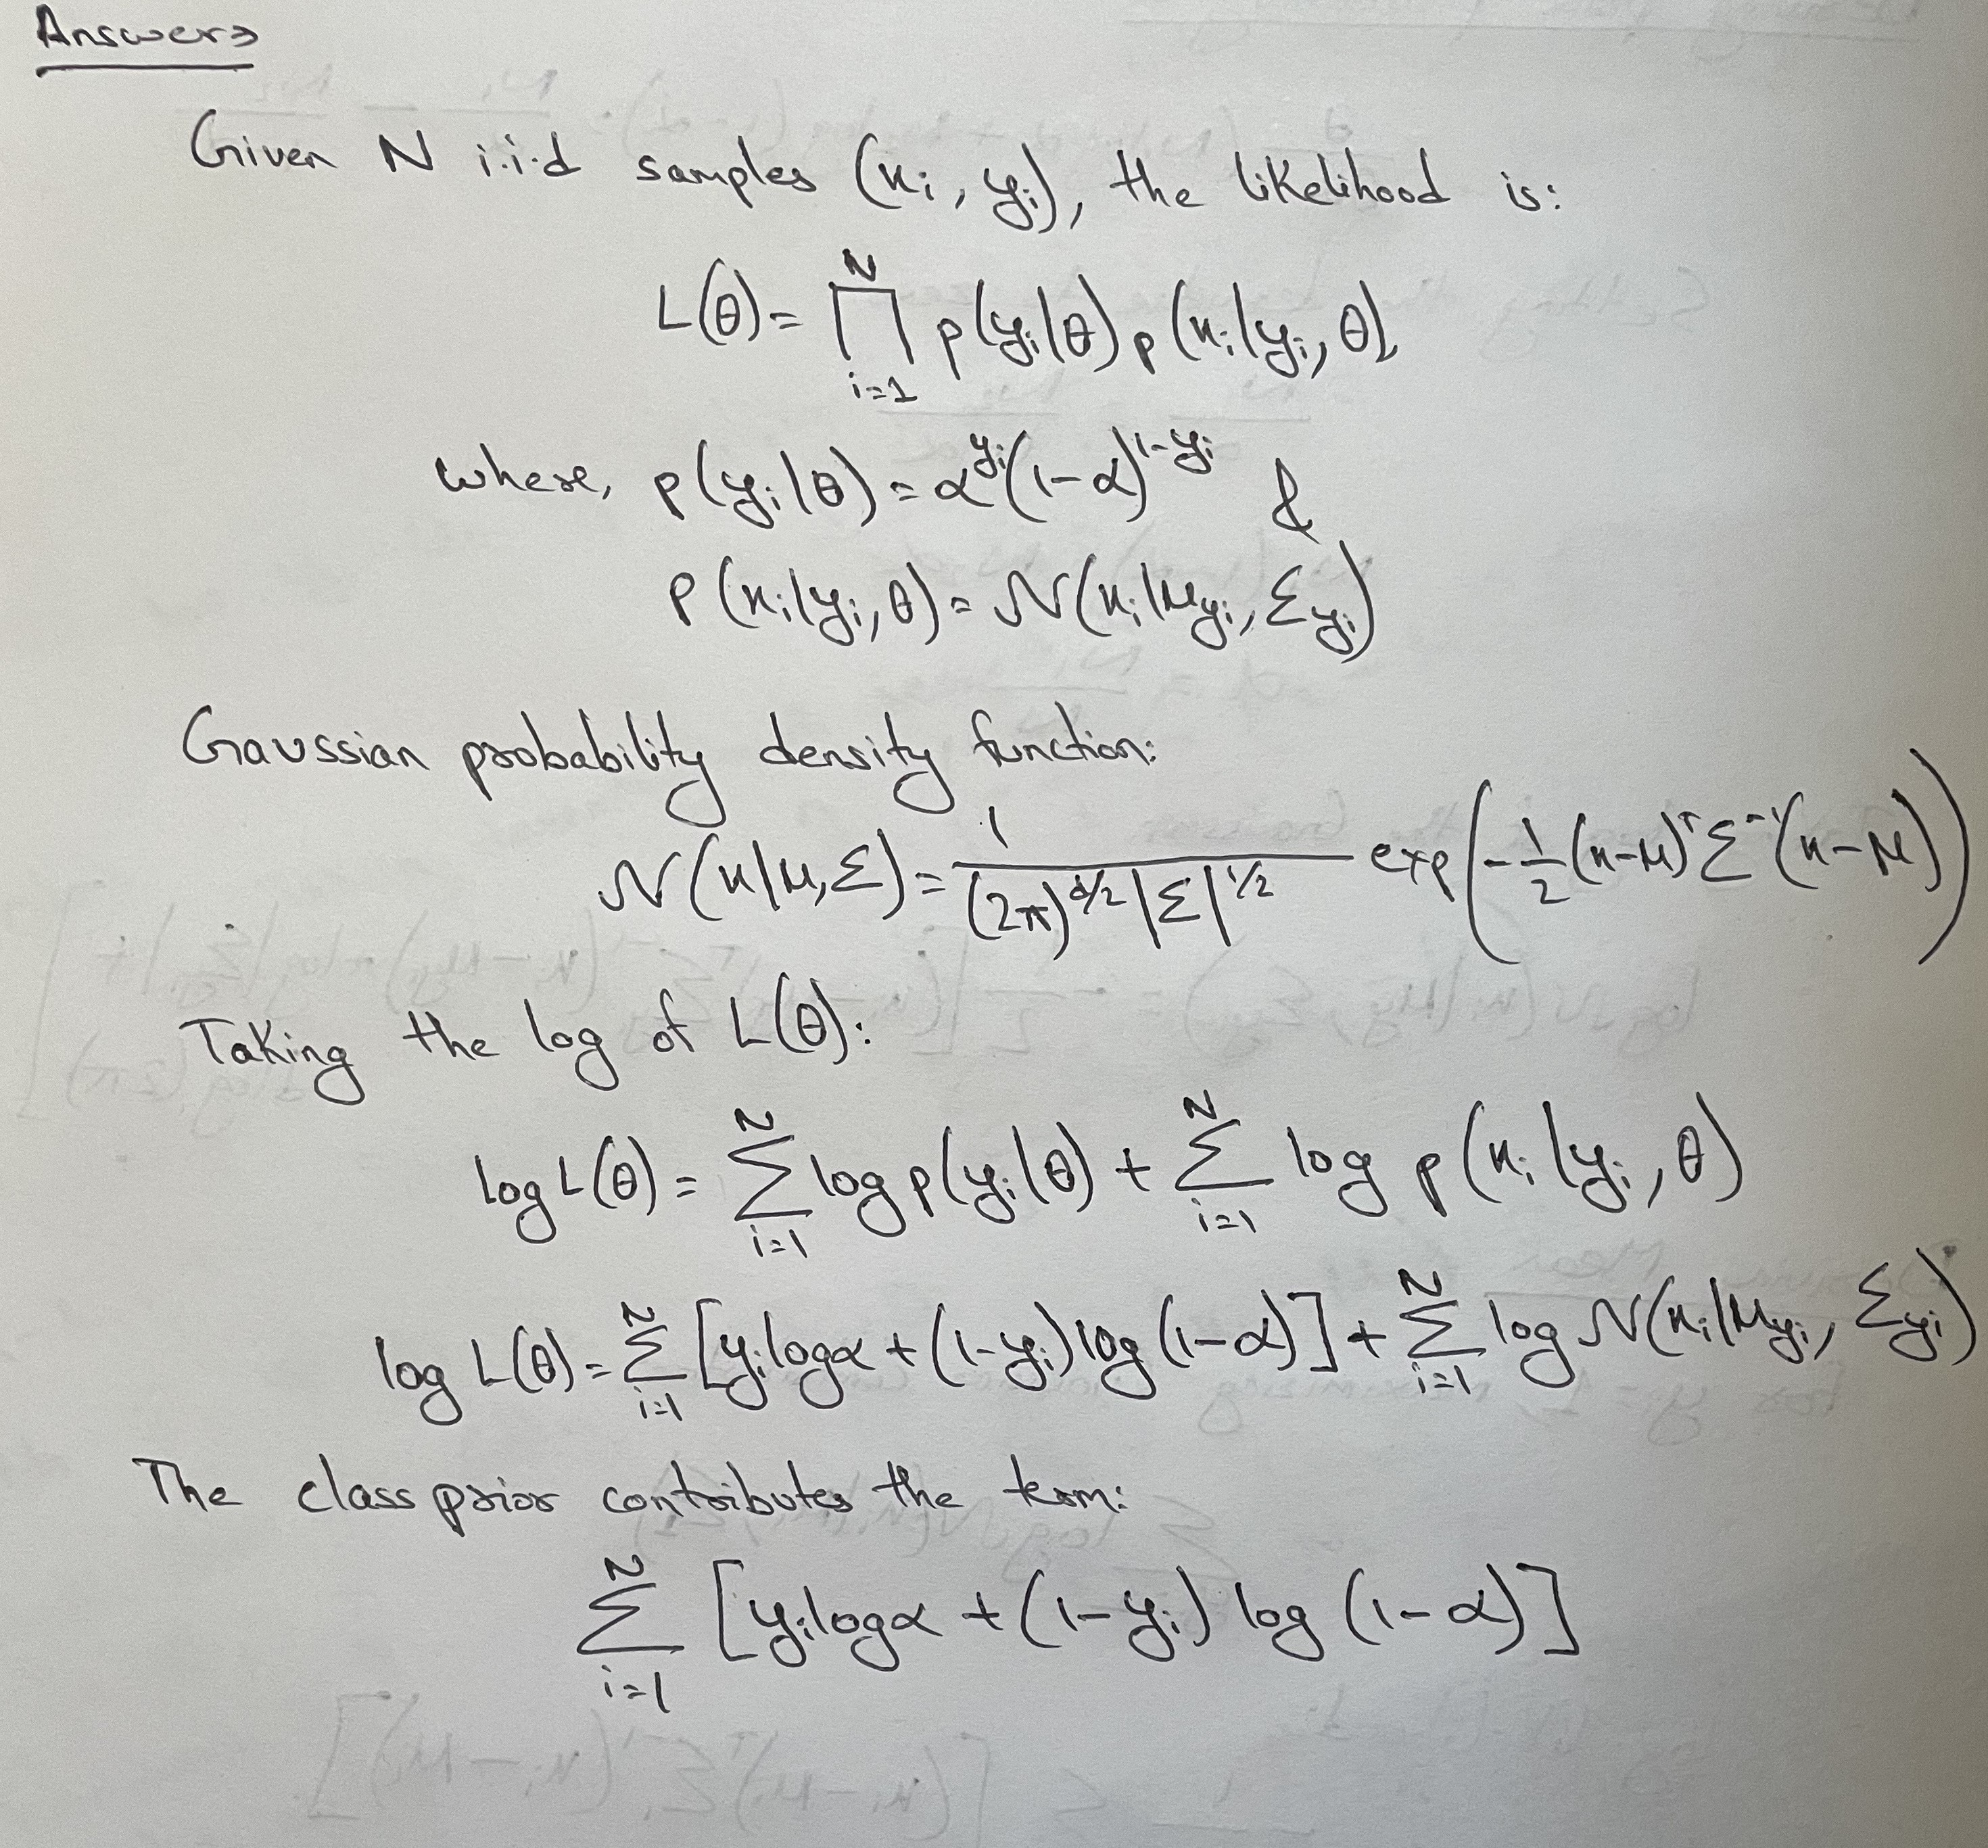 Answers
Given N i.i.d samples (xi, yi), the likelihood is:
L(θ) = ∏_{i=1}^{N} p(yi|θ) p(xi|yi, θ),
where, p(yi|θ) = α^{yi}(1-α)^{1-yi} &
p(xi|yi, θ) = N(xi|μ_{yi}, Σ_{yi})
Gaussian probability density function:
N(x|μ, Σ) = 1/((2π)^{d/2} |Σ|^{1/2}) exp(-1/2 (x-μ)^T Σ^{-1} (x-μ))
Taking the log of L(θ):
log L(θ) = Σ_{i=1}^{N} log p(yi|θ) + Σ_{i=1}^{N} log p(xi|yi, θ)
log L(θ) = Σ_{i=1}^{N} [yi log α + (1-yi) log (1-α)] + Σ_{i=1}^{N} log N(xi|μ_{yi}, Σ_{yi})
The class prior contributes the term:
Σ_{i=1}^{N} [yi log α + (1-yi) log (1-α)]